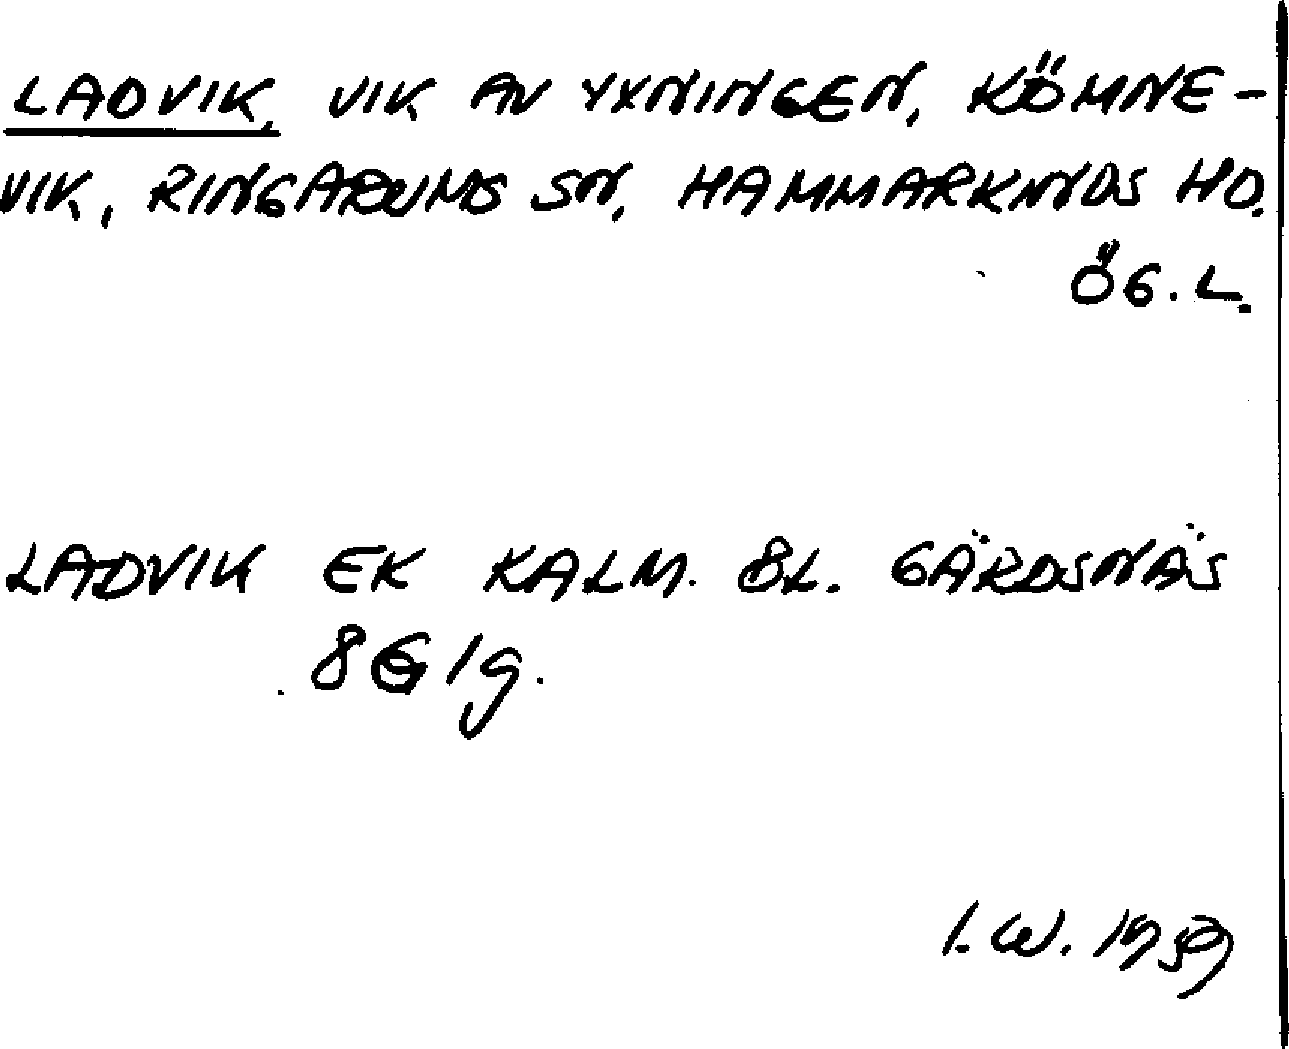 LADVIK, VIK AV YXNINGEN, KÖMNE-
VIK, RINGARUMS SN, HAMMARKINDS HD.
ÖG. L.
LADVIK EK KALM. BL. GÄRDSNÄS
8G 1g.
I. W. 1959